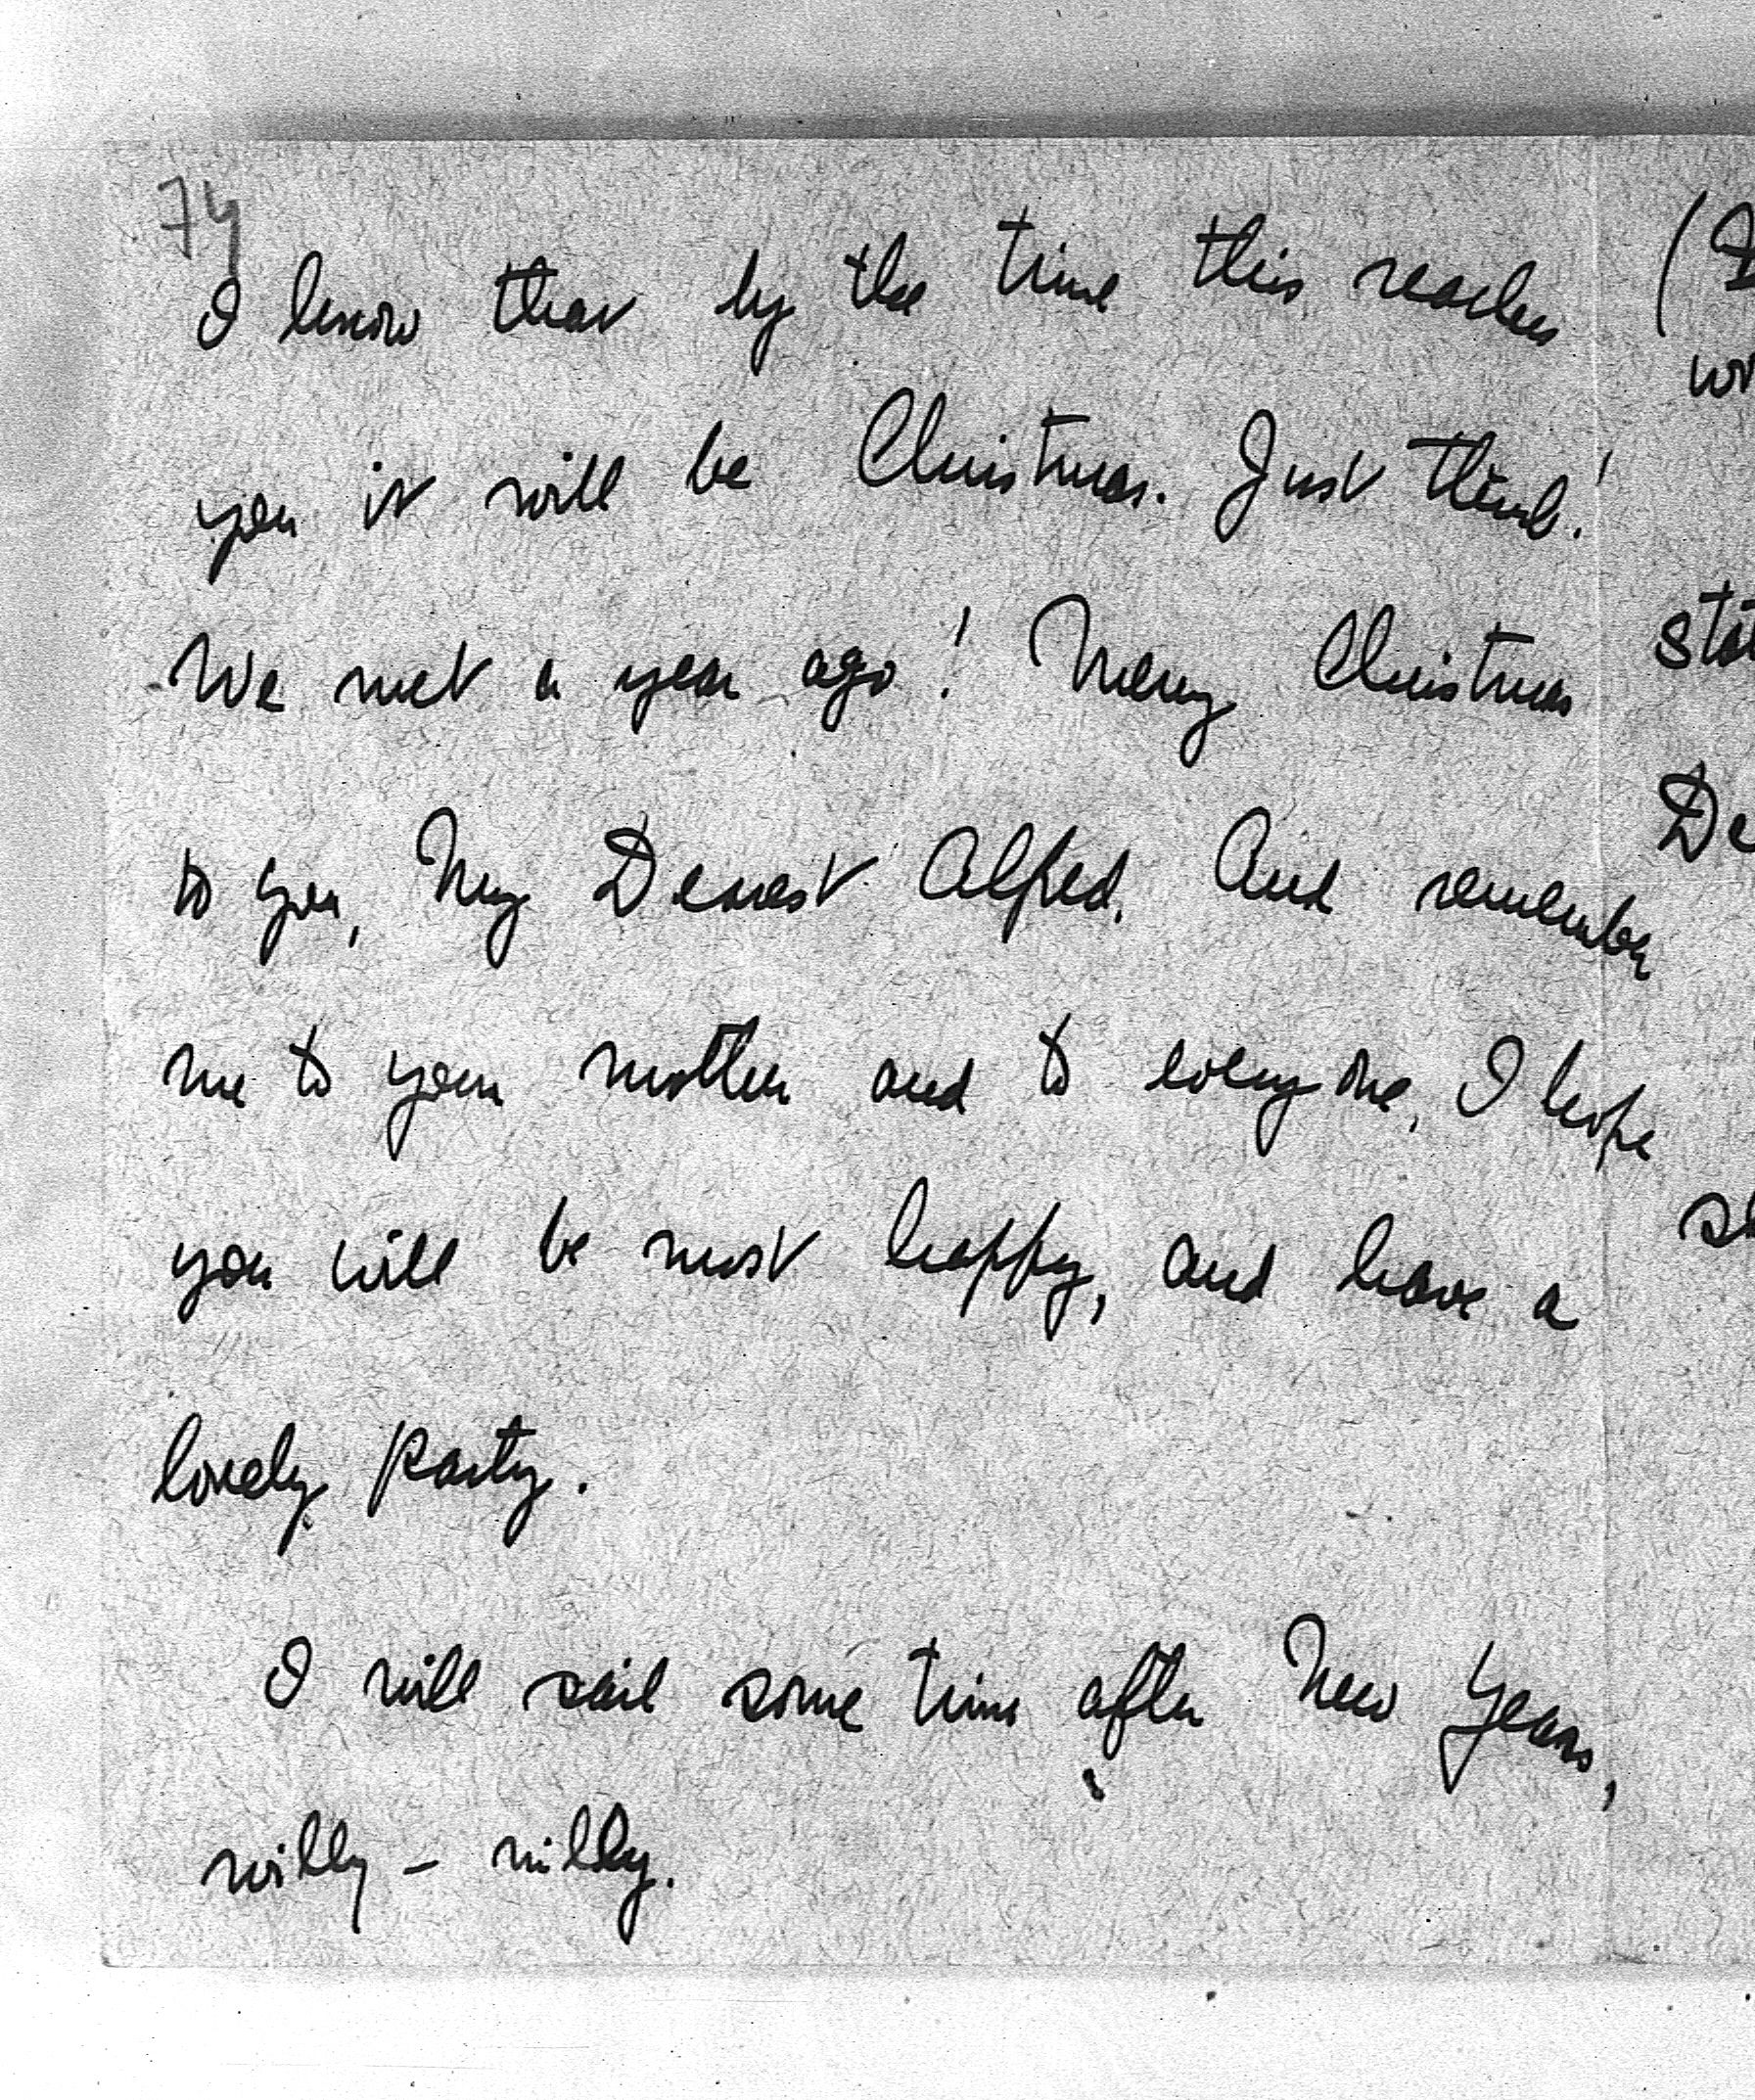 74
I know that by the time this reaches
you it will be Christmas. Just think!
We met a year ago! Merry Christmas
to you, My Dearest Alfred. And remember
me to your mother and to everyone, I hope
you will be most happy, and have a
lovely party.
I will sail some time after New Years,
willy - nilly.